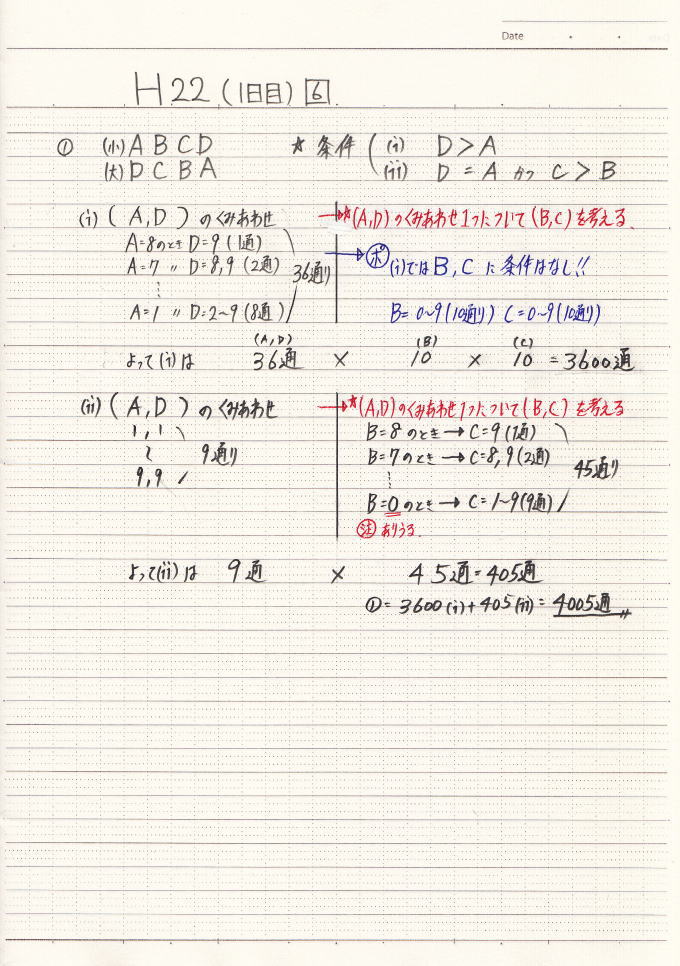 Date
H22 (1日目) 6
① (小) A B C D ☆ 条件 (i) D > A
(大) D C B A (ii) D = A かつ C > B
(i) (A, D) のくみあわせ → ☆(A,D)のくみあわせ1つについて(B,C)を考える.
A=8のとき D=9 (1通)
A=7 〃 D=8,9 (2通) 36通り → ポ (i)ではB,Cに条件はなし!!
⋮
A=1 〃 D=2~9 (8通) B=0~9(10通り) C=0~9(10通り)
(A,D) (B) (C)
よって(i)は 36通 × 10 × 10 = 3600通
(ii) (A, D) のくみあわせ → ☆(A,D)のくみあわせ1つについて(B,C)を考える
1,1 B=8のとき → C=9 (1通)
~ 9通り B=7のとき → C=8,9(2通) 45通り
9,9 ⋮
B=0のとき → C=1~9(9通)
注 ありうる.
よって(ii)は 9通 × 45通=405通
①= 3600(i)+405(ii)= 4005通